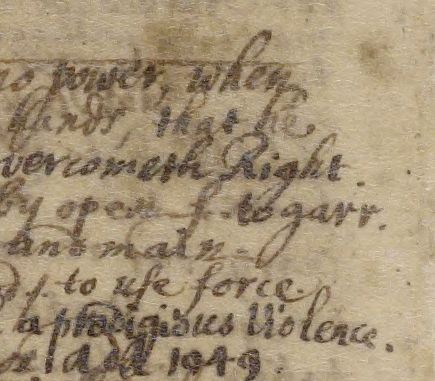 power, when
hands, that he
vercometh Right.
by open f. to garr.
and main.
to use force.
a prodigious Violence.
1949.